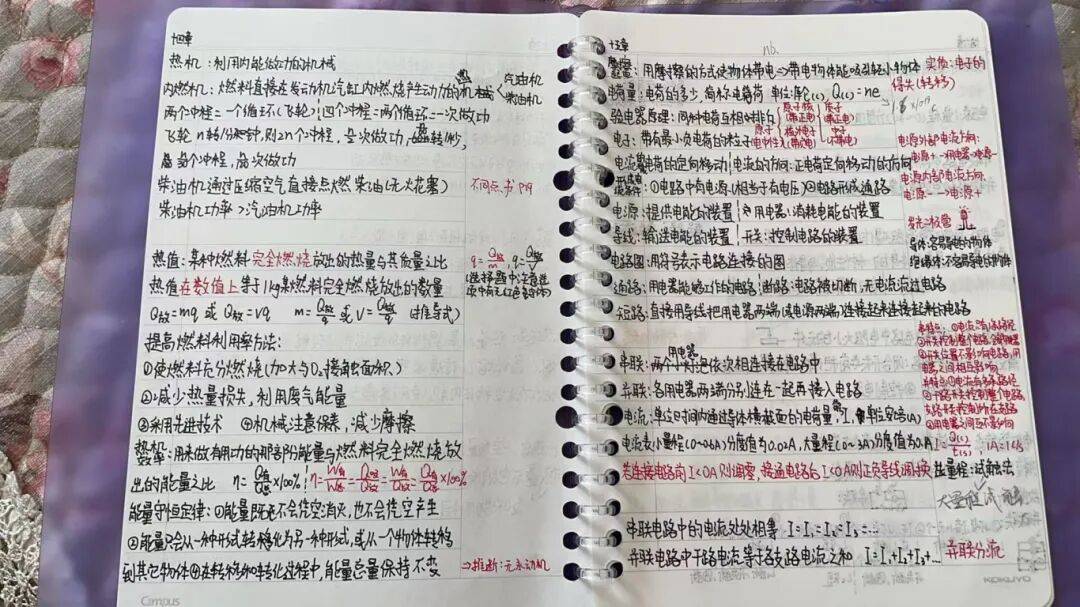 十四章
热机：利用内能做功的机械
内燃机：燃料直接在发动机汽缸内燃烧产生动力的热机
汽油机
柴油机
两个冲程=一个循环(飞轮) 四个冲程=两个循环=一次做功
飞轮 n转/分钟,则2n个冲程,
次做功
柴油机通过压缩空气直接点燃柴油(无火花塞)
不同点：书P19
柴油机功率>汽油机功率
热值：某种燃料完全燃烧放出的热量与其质量之比
热值在数值上等于1kg某燃料完全燃烧放出的热量
(选择题中注意选项中有无红色字体)
Q放=mq 或 Q放=Vq m=Q放/q 或 V=Q放/q (推导式)
提高燃料利用率方法：
①使燃料充分燃烧(加大与O₂接触面积)
②减少热量损失,利用废气能量
③采用先进技术 ④机械注意保养,减少摩擦
热机效率：用来做有用功的那部分能量与燃料完全燃烧放
出的能量之比
×100%
能量守恒定律：①能量既不会凭空消灭,也不会凭空产生
②能量只会从一种形式转化为另一种形式,或从一个物体转移
到其它物体③在转移和转化过程中,能量总量保持不变
⇒推断：无永动机
Campus
十五章
摩擦起电：用摩擦的方式使物体带电⇒带电物体能吸引轻小物体
实质：电子的得失(转移)
电荷量：电荷的多少,简称电荷 单位：库仑(C) Q(c)=ne
验电器原理：同种电荷互相排斥
原子核(带正电)
质子(带正电)
中子(不带电)
核外电子(带负电)
原子(电中性)
电子：带有最小负电荷的粒子
电流：电荷的定向移动 电流的方向：正电荷定向移动的方向
电源外部电流方向：
电源+→用电器→电源-
电源内部电流方向：
电源-→电源+
①电路中有电源(相当于有电压)②电路形成通路
电源：提供电能的装置 用电器：消耗电能的装置
导线：输送电能的装置 开关：控制电路的装置
导体：容易导电的物体
绝缘体：不容易导电的物体
电路图：用符号表示电路连接的图
通路：用电器能够工作的电路 断路：电路被切断,无电流流过电路
短路：直接用导线把用电器两端(或电源两端)连接起来的电路
串联：两个用电器依次相连接在电路中
并联：各用电器两端分别连在一起再接入电路
电流：单位时间内通过导体横截面的电荷量,I,单位：安培(A)
电流表小量程(0~0.6A)分度值为0.02A,大量程(0~3A)分度值为0.1A
若连接电路前I<0A则调零,接通电路后I<0A则正负导线调换
选量程：试触法
大量程试触
串联电路中的电流处处相等 I=I₁=I₂=I₃=...
并联电路中干路电流等于各支路电流之和 I=I₁+I₂+I₃+...
并联分流
KOKUYO